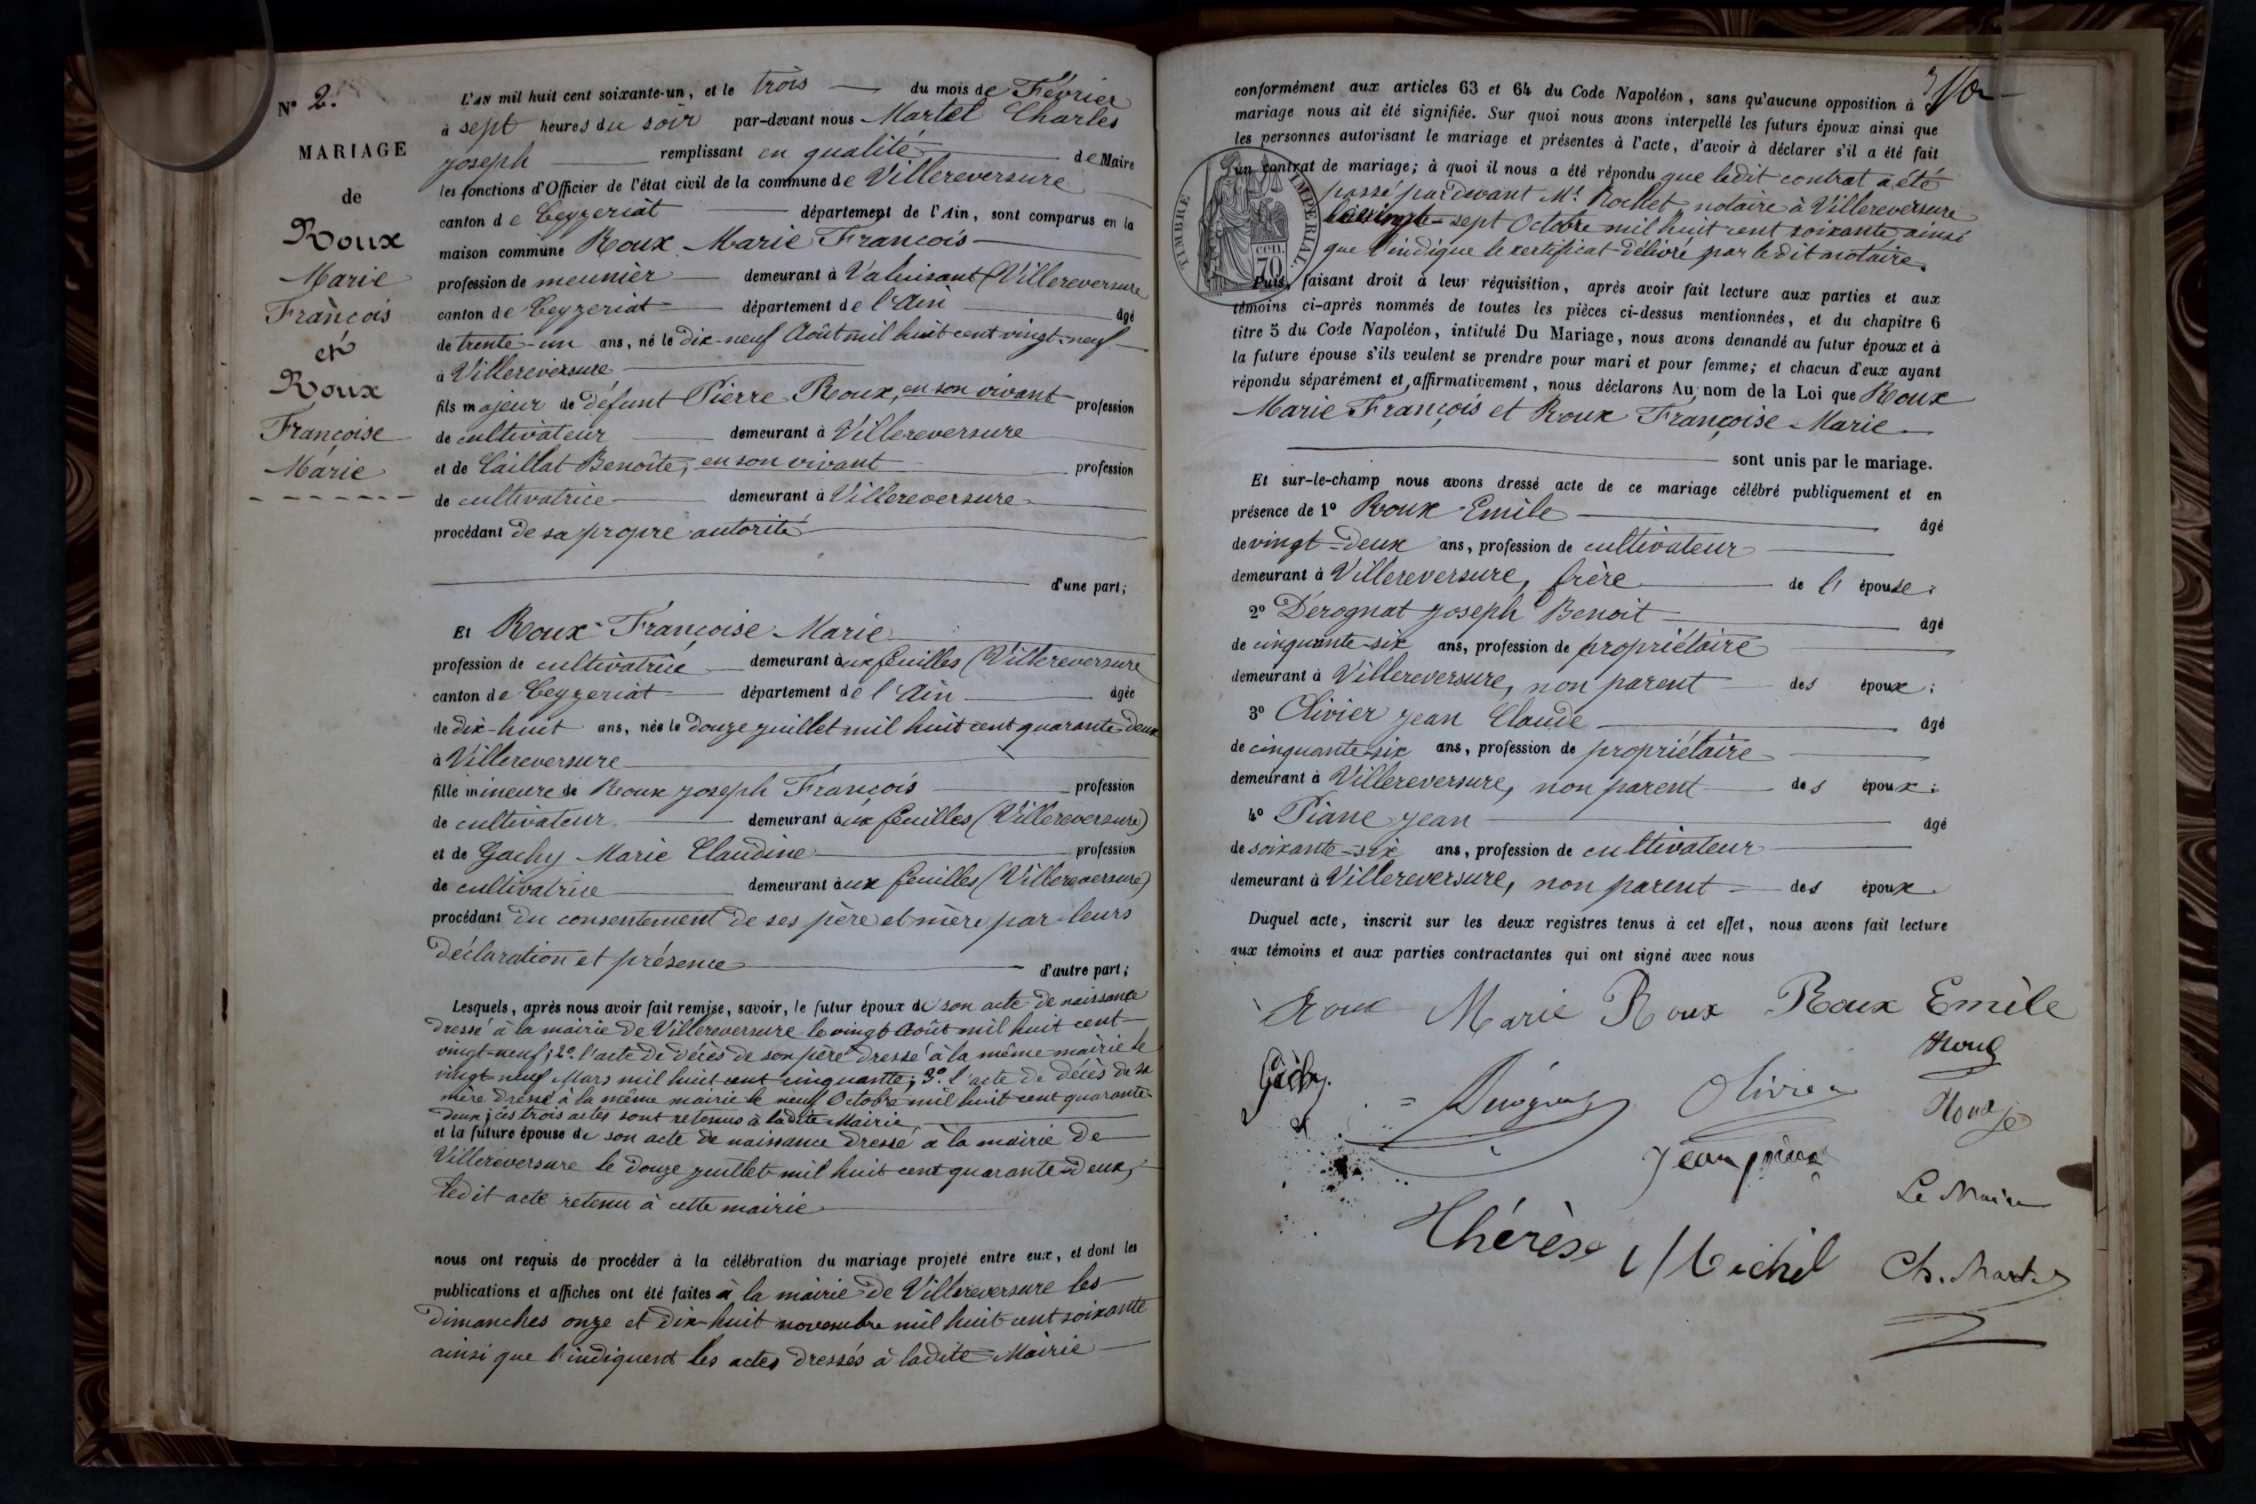 N° 2.
MARIAGE
de
Roux
Marie
François
et
Roux
Françoise
Marie
L'AN mil huit cent soixante-un, et le trois du mois de Février
à sept heures du soir par-devant nous Martel Charles
Joseph remplissant en qualité de Maire
les fonctions d'Officier de l'état civil de la commune de Villereversure
canton de Ceyzeriat département de l'Ain, sont comparus en la
maison commune Roux Marie François
profession de meunier demeurant à Valuisant (Villereversure
canton de Ceyzeriat département de l'Ain âgé
de trente-un ans, né le dix-neuf Août mil huit cent vingt-neuf
à Villereversure
fils majeur de défunt Pierre Roux, en son vivant profession
de cultivateur demeurant à Villereversure
et de Caillat Benoîte, en son vivant profession
de cultivatrice demeurant à Villereversure
procédant de sa propre autorité
d'une part;
Et Roux Françoise Marie
profession de cultivatrice demeurant aux feuilles (Villereversure
canton de Ceyzeriat département de l'Ain âgée
de dix-huit ans, née le douze juillet mil huit cent quarante-deux
à Villereversure
fille mineure de Roux Joseph François profession
de cultivateur demeurant aux feuilles (Villereversure)
et de Gachy Marie Claudine profession
de cultivatrice demeurant aux feuilles (Villereversure)
procédant du consentement de ses père et mère par leurs
déclaration et présence d'autre part;
Lesquels, après nous avoir fait remise, savoir, le futur époux de son acte de naissance
dressé à la mairie de Villereversure le vingt Août mil huit cent
vingt-neuf; 2° l'acte de décès de son père dressé à la même mairie le
vingt neuf Mars mil huit cent cinquante; 3° l'acte de décès de sa
mère dressé à la même mairie le neuf Octobre mil huit cent quarante
deux; ces trois actes sont retenus à ladite Mairie
et la future épouse de son acte de naissance dressé à la mairie de
Villereversure le douze juillet mil huit cent quarante-deux,
ledit acte retenu à cette mairie
nous ont requis de procéder à la célébration du mariage projeté entre eux, et dont les
publications et affiches ont été faites à la mairie de Villereversure les
dimanches onze et dix-huit novembre mil huit cent soixante
ainsi que l'indiquent les actes dressés à ladite Mairie
conformément aux articles 63 et 64 du Code Napoléon, sans qu'aucune opposition à
mariage nous ait été signifiée. Sur quoi nous avons interpellé les futurs époux ainsi que
les personnes autorisant le mariage et présentes à l'acte, d'avoir à déclarer s'il a été fait
un contrat de mariage; à quoi il nous a été répondu que ledit contrat a été
passé par devant Me Rochet notaire à Villereversure
sept Octobre mil huit cent soixante, ainsi
que l'indique le certificat délivré par ledit notaire.
TIMBRE IMPERIAL.
70 cen.
Puis, faisant droit à leur réquisition, après avoir fait lecture aux parties et aux
témoins ci-après nommés de toutes les pièces ci-dessus mentionnées, et du chapitre 6
titre 5 du Code Napoléon, intitulé Du Mariage, nous avons demandé au futur époux et à
la future épouse s'ils veulent se prendre pour mari et pour femme; et chacun d'eux ayant
répondu séparément et affirmativement, nous déclarons Au nom de la Loi que Roux
Marie François et Roux Françoise Marie
sont unis par le mariage.
Et sur-le-champ nous avons dressé acte de ce mariage célébré publiquement et en
présence de 1° Roux Emile âgé
de vingt-deux ans, profession de cultivateur
demeurant à Villereversure, frère de l'épouse;
2° Dérognat Joseph Benoit âgé
de cinquante-six ans, profession de propriétaire
demeurant à Villereversure, non parent des époux;
3° Olivier Jean Claude âgé
de cinquante-six ans, profession de propriétaire
demeurant à Villereversure, non parent des époux;
4° Piane Jean âgé
de soixante-six ans, profession de cultivateur
demeurant à Villereversure, non parent des époux.
Duquel acte, inscrit sur les deux registres tenus à cet effet, nous avons fait lecture
aux témoins et aux parties contractantes qui ont signé avec nous
Roux Marie Roux Roux Emile
Roux
Olivier
Le Maire
Thérèse Michel Ch. Martel